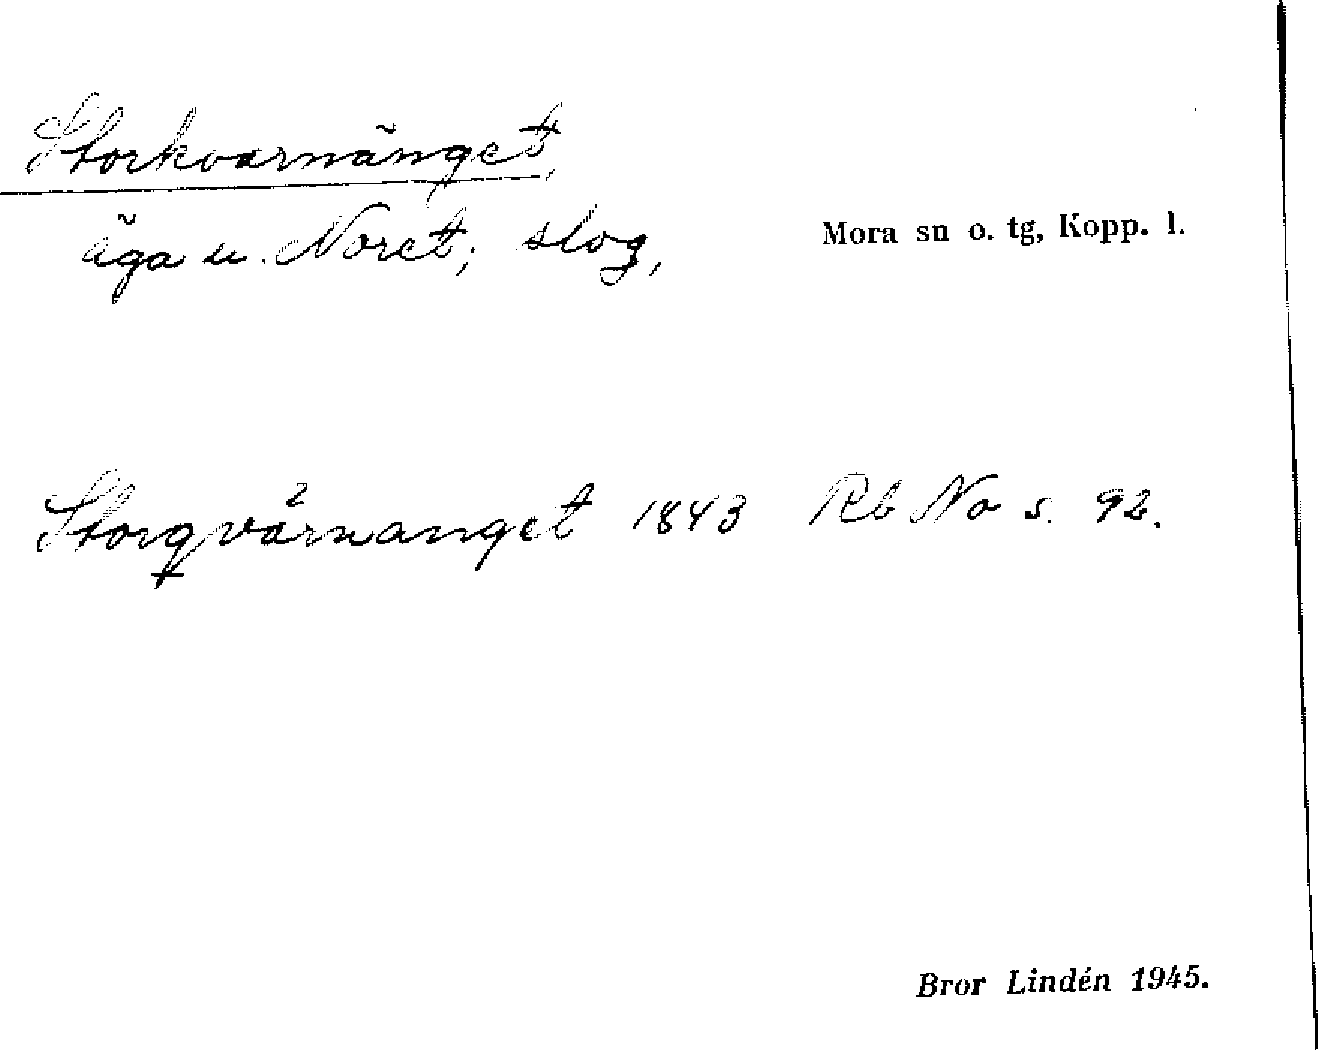 Storkvarnänget,
äga u. Noret; slog,
Mora sn o. tg, Kopp. l.
Storqvårnanget 1843 Rb No s. 92.
Bror Lindén 1945.